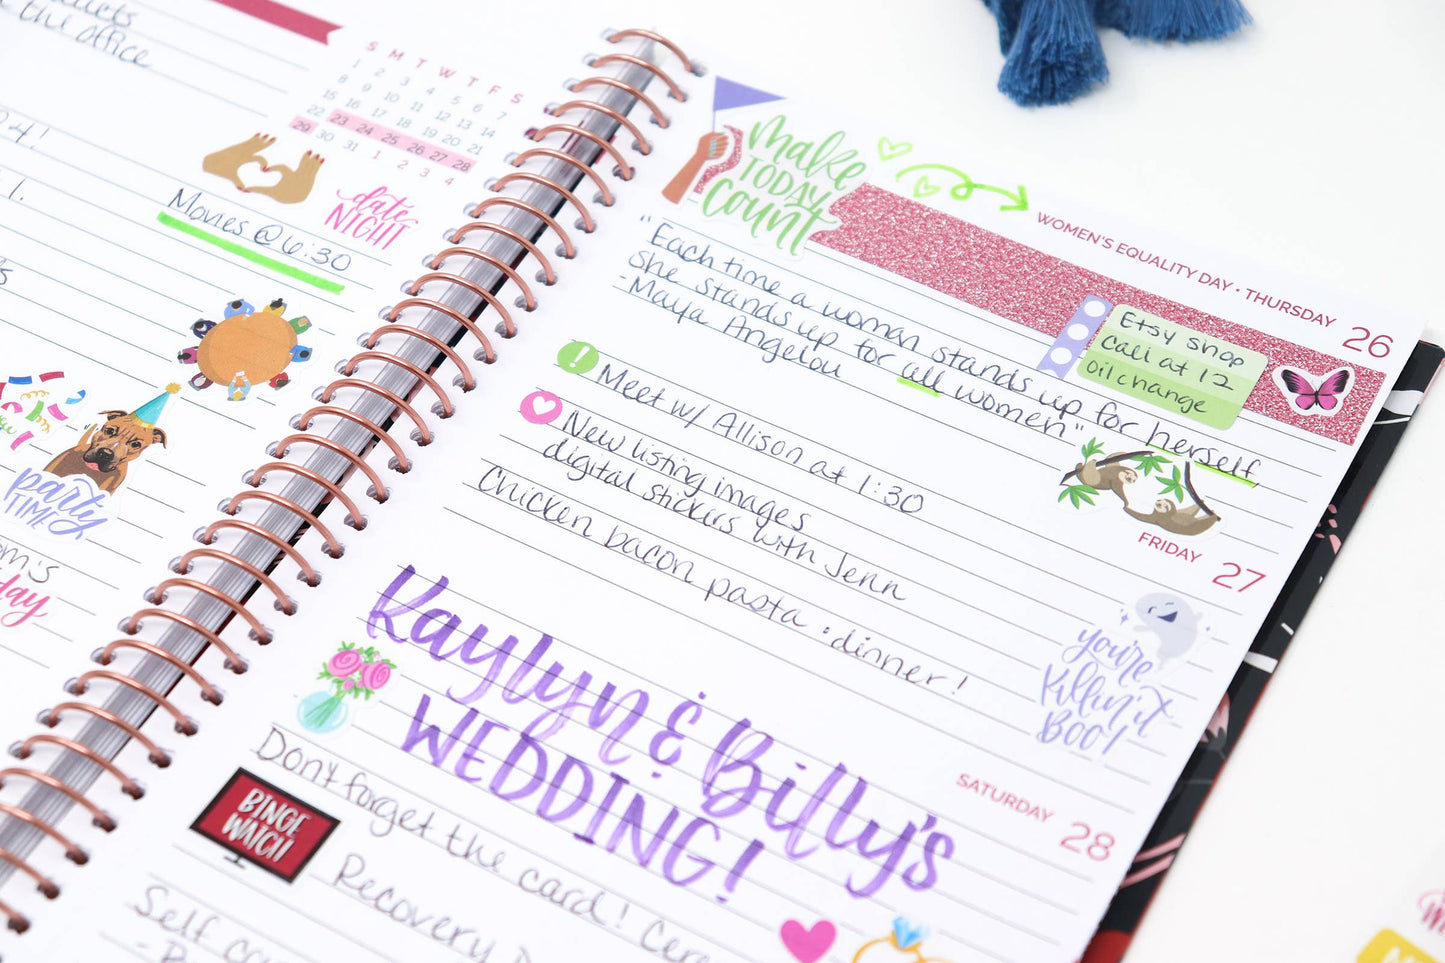 the office
S M T W T F S
1 2 3 4 5 6 7
8 9 10 11 12 13 14
15 16 17 18 19 20 21
22 23 24 25 26 27 28
29 30 31 1 2 3 4
Movies @ 6:30
date
NIGHT
party
TIME
make
TODAY
count
WOMEN'S EQUALITY DAY • THURSDAY 26
"Each time a woman stands up for herself,
she stands up for all women"
-Maya Angelou
Etsy shop
call at 12
oil change
Meet w/ Allison at 1:30
New listing images
digital stickers with Jenn
Chicken bacon pasta : dinner!
FRIDAY 27
you're
killin' it
BOO!
Kaylyn & Billy's
WEDDING!
SATURDAY 28
Don't forget the card!
BINGE
WATCH
Recovery
Self